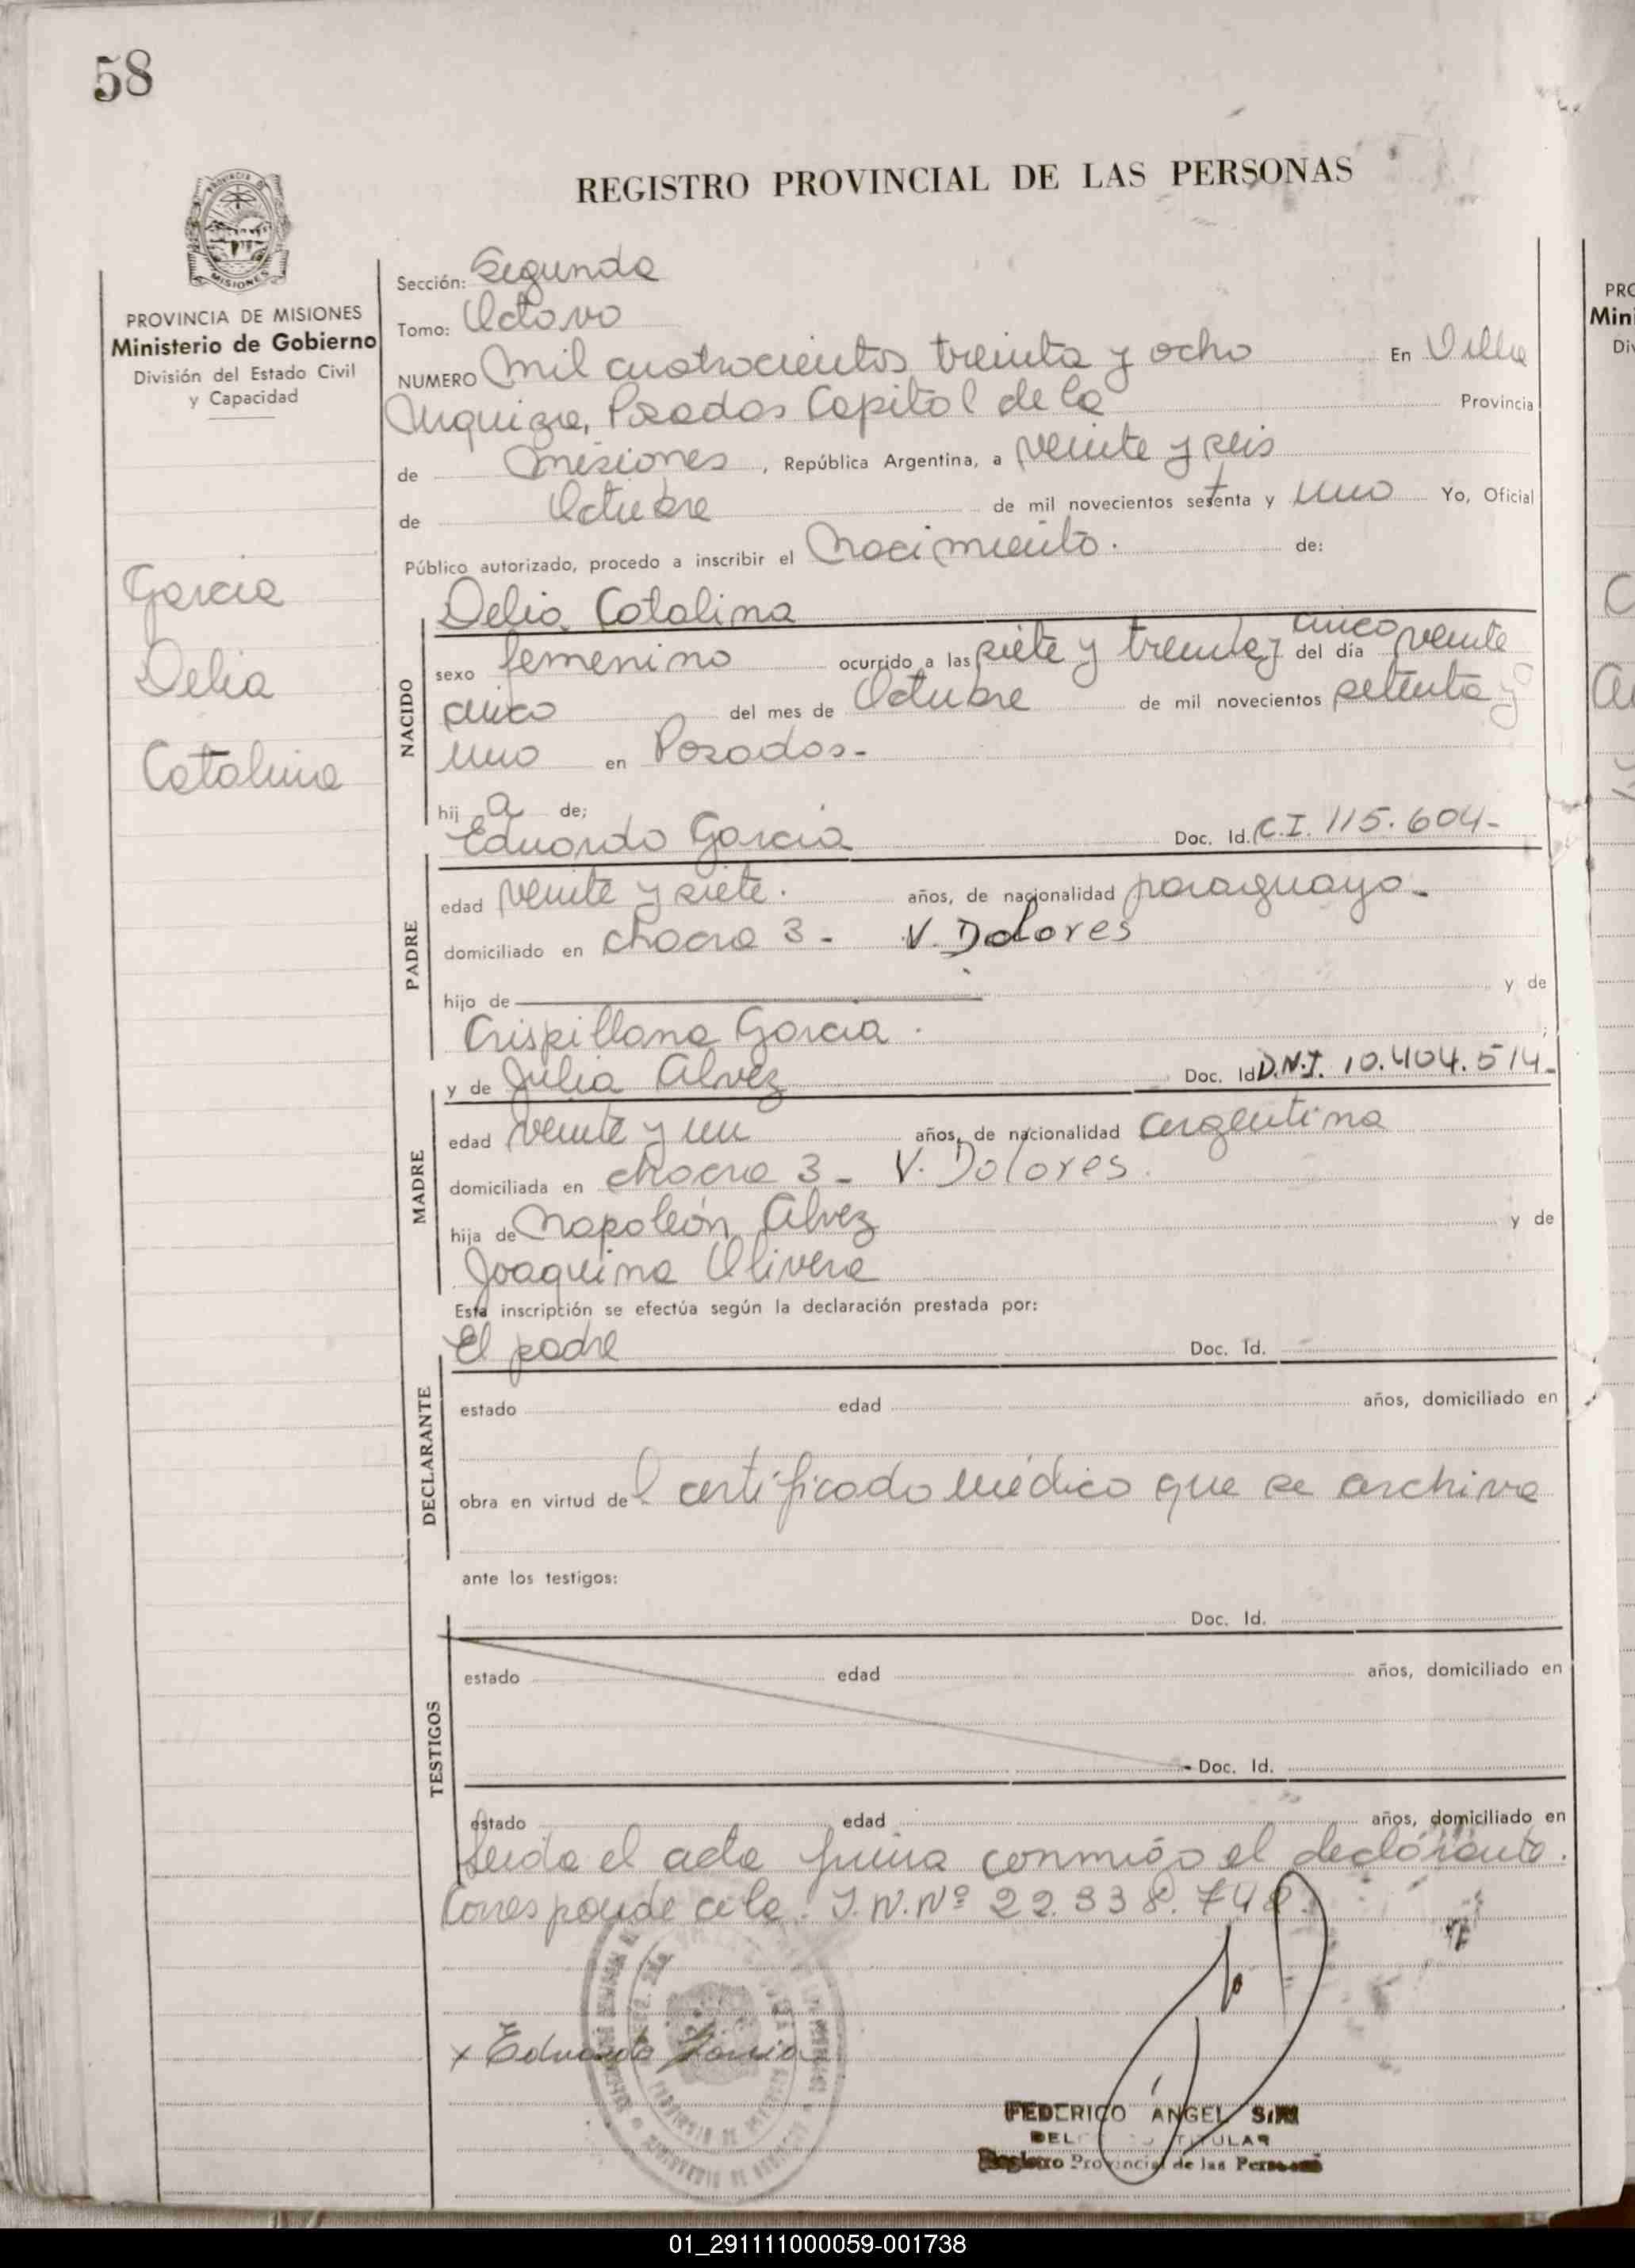 58
REGISTRO PROVINCIAL DE LAS PERSONAS
PROVINCIA DE MISIONES
Ministerio de Gobierno
División del Estado Civil
y Capacidad
Garcia
Delia
Catalina
Sección: Segunda
Tomo: Octavo
NUMERO Mil cuatrocientos treinta y ocho En Villa
Urquiza, Posadas Capital de la Provincia
de Misiones, República Argentina, a veinte y seis
de Octubre de mil novecientos setenta y uno Yo, Oficial
Público autorizado, procedo a inscribir el Nacimiento. de:
NACIDO
Delia Catalina
cinco
sexo femenino ocurrido a las siete y treinta y del día veinte
cinco del mes de Octubre de mil novecientos setenta y
uno en Posadas-
hij a de;
PADRE
Eduardo Garcia Doc. Id. C.I. 115.604-
edad veinte y siete. años, de nacionalidad paraguayo-
domiciliado en chacra 3- V. Dolores
hijo de y de
Crispillana Garcia.
MADRE
y de Julia Alvez Doc. Id D.N.I. 10.404.514-
edad veinte y un años, de nacionalidad argentina
domiciliada en chacra 3- V. Dolores.
hija de Napoleón Alvez y de
Joaquina Olivera
Esta inscripción se efectúa según la declaración prestada por:
DECLARANTE
El padre Doc. Id.
estado edad años, domiciliado en
obra en virtud de l certificado médico que se archiva
ante los testigos:
TESTIGOS
Doc. Id.
estado edad años, domiciliado en
Doc. Id.
estado edad años, domiciliado en
Leida el acta firma conmigo el declarante.
Corresponde a la I.N.Nº 22.338.748.
x Eduardo Garcia
FEDERICO ANGEL
TITULAR
Registro Provincial de las Personas
01_291111000059-001738